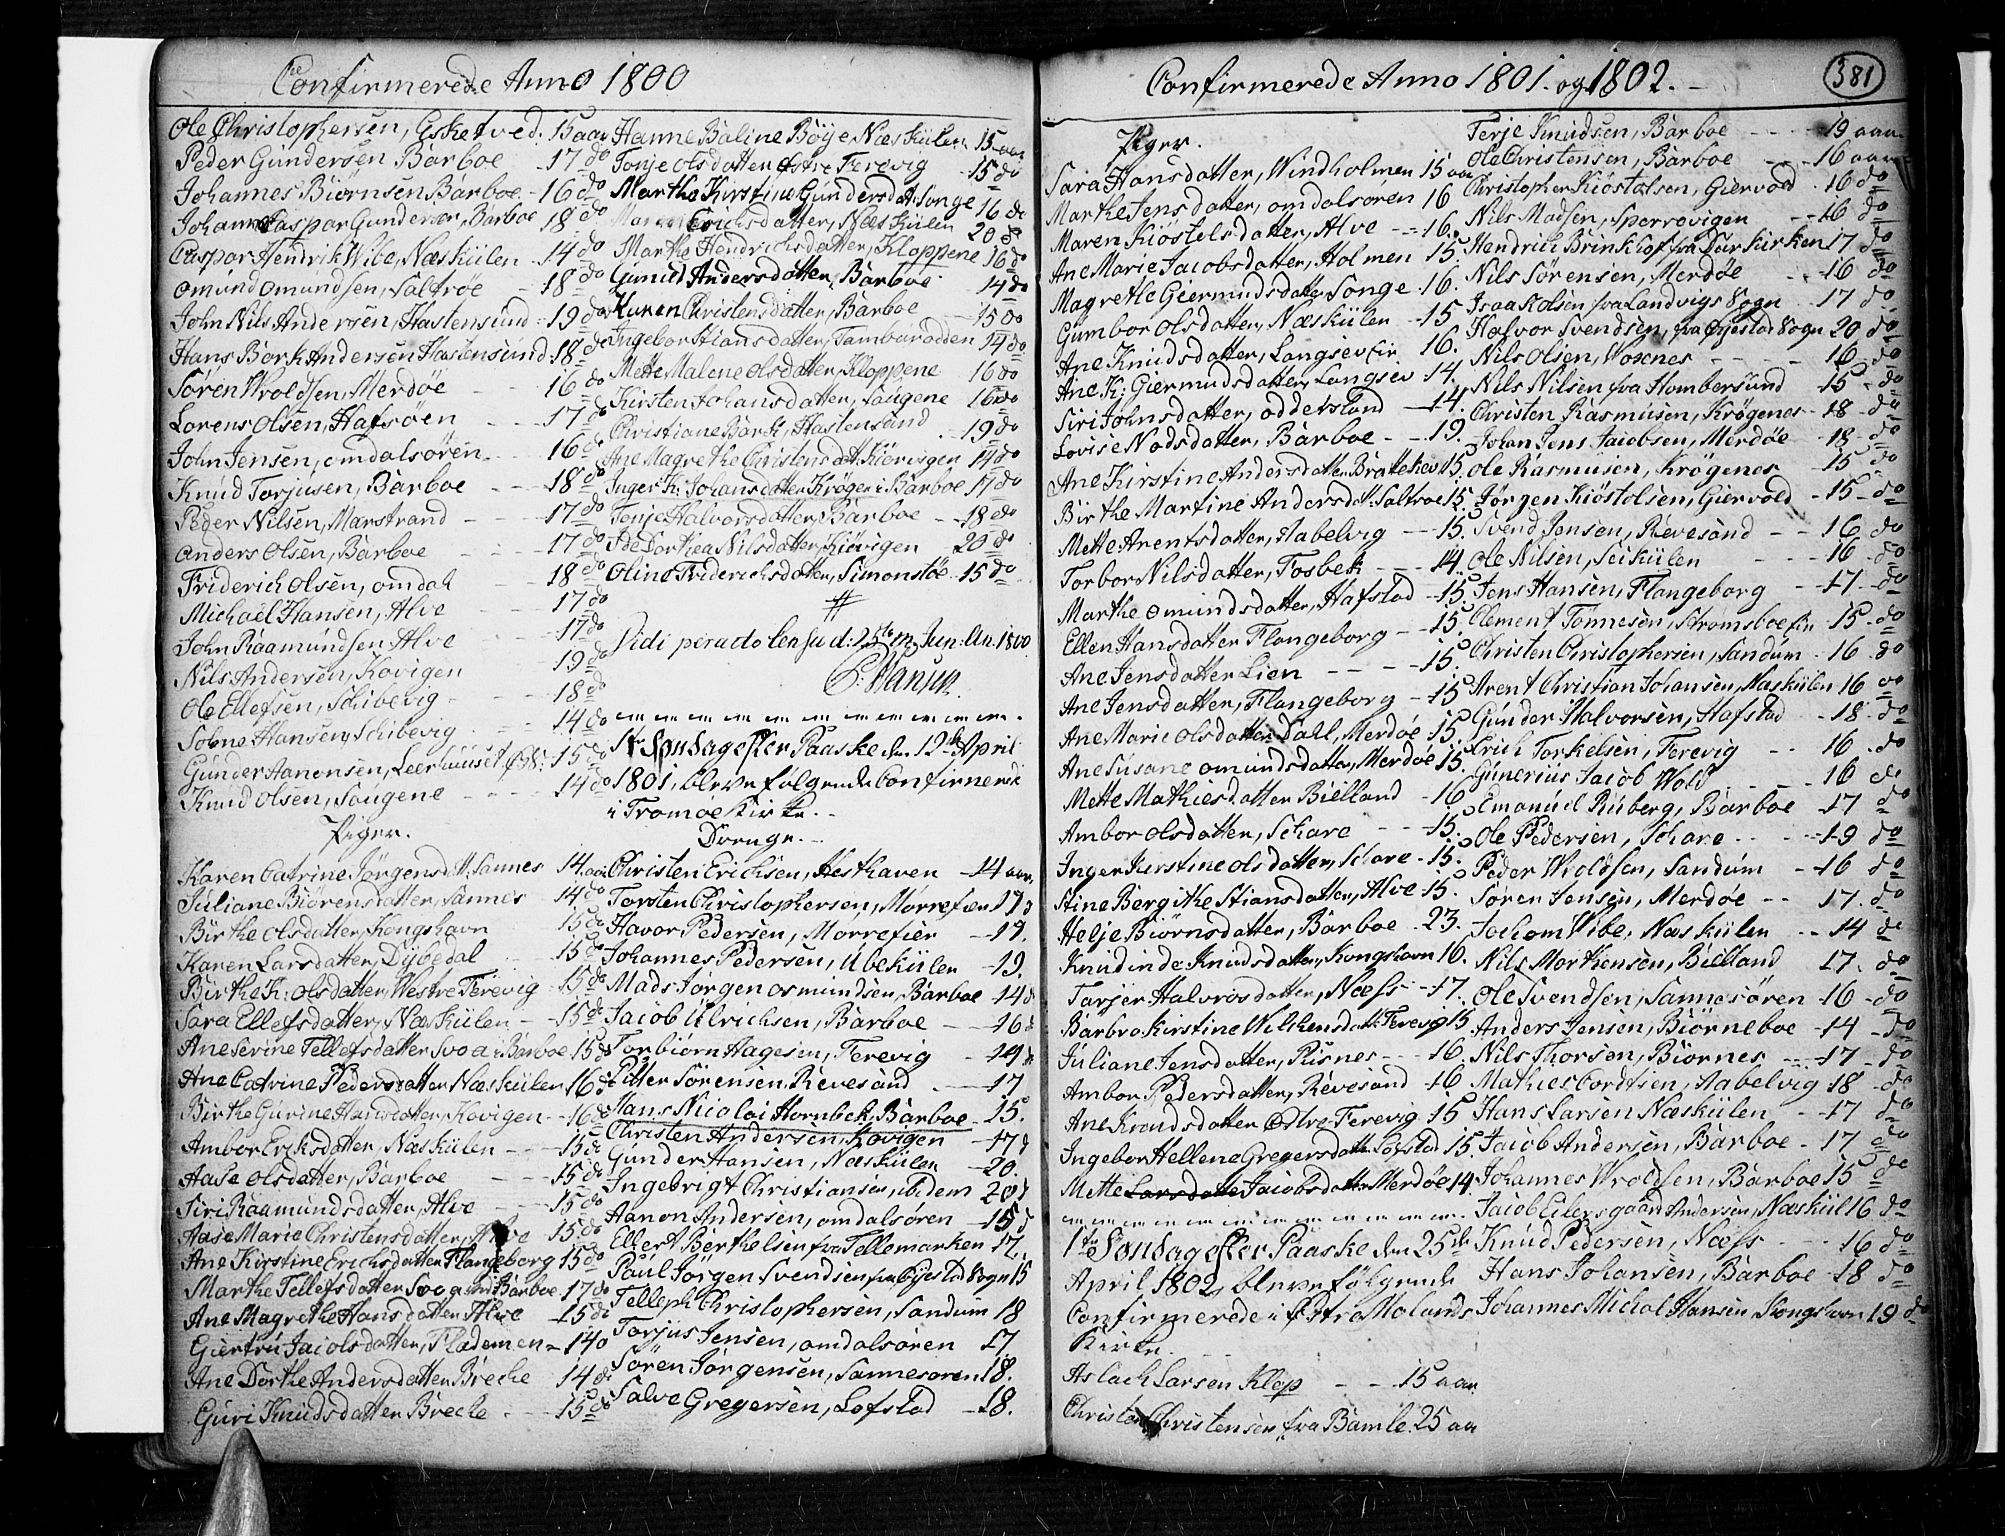 Confirmerede Anno 1800
Ole Christophersen, Eskefved. 15 aar
Peder Gundersen Barboe - 17 do
Johannes Biörnsen Barboe - 16 do
Johan Caspar Gundersen, Barboe 18 do
Caspar Hendrik Wibe, Næskülen - 14 do
Omund Omundsen, Saltröe - 18 do
John Nils Andersen, Hastensund - 19 do
Hans Bork Andersen Hastensund 18 do
Sören Wroldsen, Merdöe - - 16 do
Lorens Olsen, Hafsöen - - 17 do
John Jensen, Omdalsören - - 16 do
Knud Torjusen, Barboe - - 18 do
Peder Nilsen, Marstrand - - 17 do
Anders Olsen, Barboe - - 17 do
Friderich Olsen, Omdal - 18 do
Michael Hansen, Alve - - 17 do
John Raamundsen Alve - 17 do
Nils Andersen, Kovigen 19 do
Ole Ellefsen, Schibevig - 18 do
Solne Hansen, Schibevig - 14 do
Gunder Aanonsen, Leerhuuset 15 do
Knud Olsen, Saugene - - 14 do
Piger.
Karen Catrine Jörgensd: Sannes 14 aar
Juliane Biörensdatter, Sannes 14 do
Birthe Olsdatter, Kongshavn 15 do
Karen Larsdatter, Dybedal 15 do
Birthe K: Olsdatter, Westre Ferevig - 15 do
Sara Ellefsdatter, Næskülen - 15 do
Ane Serine Tellefsdatter Svoa i Barboe 15 do
Ane Catrine Pedersdatter Næskülen 16 do
Birthe Gurine Hansdatter, Kovigen - 16 do
Ambor Ericksdatter, Næskülen - 15 do
Aase Olsdatter, Barboe - 15 do
Siri Raamundsdatter, Alve - - 15 do
Aase Marie Christensdatter, Alve 15 do
Ane Kirstine Erichsdatter Flangeborg 15 do
Marthe Tellefsdatter Svoa i Barboe 17 do
Ane Magrethe Hansdatter Alve - 15 do
Giertru Jacobsdatter, Flademen - 14 do
Ane Dorthe Andersdatter Breche 14 do
Guri Knudsdatter Breche - - 15 do
Hanne Baline Böye Næskülen 15 aar
Tonje Olsdatter Østre Ferevig - 15 do
Marthe Kirstine Gundersdat: Songe 16 do
Maren Erichsdatter, Næskülen 20 do
Marthe Hendrichsdatter, Kloppene 16 do
Gunild Andersdatter, Barboe - 14 do
Karen Christensdatter, Barboe - 15 do
Ingebor Stiansdatter, Tambarodden 14 do
Mette Malene Olsdatter, Kloppene 16 do
Kirsten Johansdatter, Saugene 16 do
Christiane Bork, Hastensund - 19 do
Ane Magrethe Christensdat: Kiörvigen 14 do
Inger K: Johansdatter Krøgen i Barboe 17 do
Tonje Halvorsdatter, Barboe - 18 do
Ide Dorthea Nilsdatter, Kiövigen 20 do
Oline Friderichsdatter, Simonstöe - 15 do
Vidi peracto censu d: 25te m: Jun: An: 1800
P: Hansen.
1te Søndag efter Paaske den 12te April
1801, bleve følgende Confirmerede
i Tromöe Kirke.
Drenge.
Christen Erichsen, Hesthaven - 14 aar
Torsten Christophersen, Morrefier 17 d
Havor Pedersen, Morrefier - 19.
Johannes Pedersen, Ubekülen - 19.
Mads Jörgen Osmundsen, Barboe 14 d
Jacob Ulrichsen, Barboe - 16 d
Torbiörn Aagesen, Ferevig - 19 d
Pitter Sörensen, Revesand - 17
Hans Nicolai Hornbek, Barboe - 15.
Christen Andersen, Kovigen - 17 d
Gunder Hansen, Næskülen - 20.
Ingebrigt Christiansen, ibidem 20 d
Aanon Andersen, Omdalsören - 15 d
Ellert Berthelsen fra Tellemarken 17.
Paul Jörgen Svendsen fra Øyestad Sogn 15
Telleph Christophersen, Sandum 18
Torjus Jensen, Omdalsören 17.
Sören Jörgensen, Sannesören 18.
Salve Gregersen, Lofstad - 18.
Confirmerede Anno 1801. og 1802.
381
Piger.
Sara Hansdatter, Windholmen 15 aar
Marthe Jensdatter, Omdalsören 16
Maren Kiöstelsdatter, Alve - - 16.
Ane Marie Jacobsdatter, Holmen 15.
Magrethe Giermundsdatter Songe 16.
Gumbor Olsdatter, Næskülen - 15
Ane Knudsdatter, Langsev Eir. 16.
Ane K: Giermundsdatter, Langsev 14.
Siri Johnsdatter, Oddersland - 14.
Lovise Nodsdatter, Barboe - - 19.
Ane Kirstine Andersdatter Brattekler 15.
Birthe Martine Andersd: Saltröe 15.
Mette Arentsdatter, Habelvig - 15.
Torbor Nilsdatter, Fosbek - - 14.
Marthe Omundsdatter, Hafstad - 15.
Ellen Hansdatter Flangeborg - 15
Ane Jensdatter Lien - - 15.
Ane Jensdatter, Flangeborg - 15
Ane Marie Olsdatter Dahl, Merdöe 15.
Ane Susane Omundsdatter, Merdöe 15.
Mette Mathiesdatter Bielland - 16
Ambor Olsdatter, Schare - - 15.
Inger Kirstine Olsdatter, Schare - 15.
Stine Bergithe Stiansdatter, Alve 15.
Helje Biörnsdatter, Barboe - 23.
Knudinde Knudsdatter, Kongshavn 16.
Tarjer Halvorsdatter, Næss - 17.
Barbro Kirstine Wilkensdat: Ferevig 15
Juliane Jensdatter, Risnes - - 16.
Ambor Pedersdatter, Revesand - 16
Ane Knudsdatter Østre Ferevig 15
Ingebor Hellene Gregersdatter Lofstad 15
Mette Larsdatte Jacobsdatter Merdöe 14
1te Søndag efter Paaske den 25de
April 1802, bleve følgende
Confirmerede i Østre Molands
Kirke.
Aslach Larsen Klop - - 15 aar
Christen Christensen fra Bamle. 25 aar
Terje Knudsen, Barboe - - - 19 aar
Ole Christensen, Barboe - - 16 aar
Christopher Kiöstolsen, Giervold - 16 do
Nils Madsen, Sporrevigen - - 16 do
Hendrich Brinkhof fra Barkirken 17 do
Nils Sörensen, Merdöe - - 16 do
Isaak Olsen fra Landvigs Sogn - 17 do
Halvor Svendsen, fra Øyestad Sogn 20 do
Nils Olsen, Woxnes - - - - 16 do
Nils Nilsen fra Hombersund - 15 do
Christen Rasmusen, Krøgenes - 18 do
Johan Jens Jacobsen, Merdöe - 18 do
Ole Rasmusen, Krøgenes - 15 do
Jörgen Kiöstolsen, Giervold - 15 do
Svend Jensen, Revesand - - 16 do
Ole Nilsen, Seikülen - 16 do
Jens Hansen, Flangeborg - 17 do
Clement Tönnesen, Strömsboe 15 do
Christen Christophersen, Sandum - 16 do
Arent Christian Johansen, Næskülen 16 do
Gunder Halvorsen, Hafstad - 18 do
Erich Torkelsen, Ferevig - - 16 do
Gunerius Jacob Wold - - 16 do
Emanuel Ruberg, Barboe - 17 do
Ole Pedersen, Schare - - - 19 do
Peder Wroldsen, Sandum - 16 do
Sören Jensen, Merdöe - - 17 do
Jochom Wibe, Næskülen - - 14 do
Nils Morthensen, Bielland 17 do
Ole Svendsen, Sannesören - 16 do
Anders Jensen, Biörneboe - 14 do
Nils Thorsen, Biörnes - - - 17 do
Mathies Cordtsen, Habelvig 18 do
Hans Larsen Næskülen - - 17 do
Jacob Andersen, Barboe - 17 do
Johannes Wroldsen, Barboe 15 do
Jacob Eilersgaard Andersen, Næskül 16 do
Knud Pedersen, Næss - - 16 do
Hans Johansen, Barboe - 18 do
Johannes Michal Hansen Kongshavn 19 do